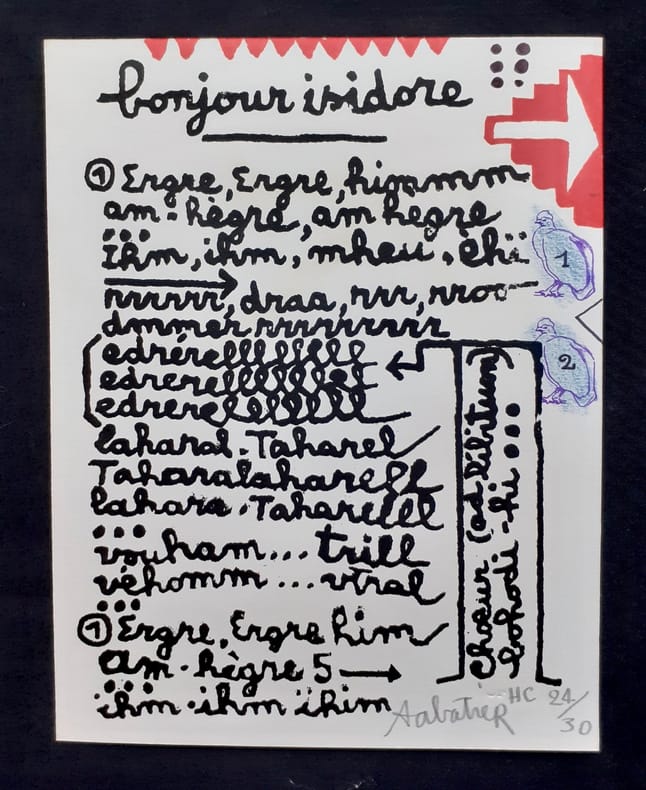 bonjour isidore
① Ergre, Ergre, himmmm
am-hègre, am hegre
ihm, ihm, mheu, ehï
rrrrrr, draa, rrr, rroo—
dmmer rrrrrrrrr
edrérellllllll
edrerellllllll
edrerellllllll
laharal-Taharel
Taharalaharelll
lahara-Taharelll
vouham... trill
véhomm... vtral
① Ergre, Ergre him
am-hègre 5 →
ihm-ihm ihim
1
2
Choeur (ad libitum)
bohodi-hi...
Sabatier HC 24/30